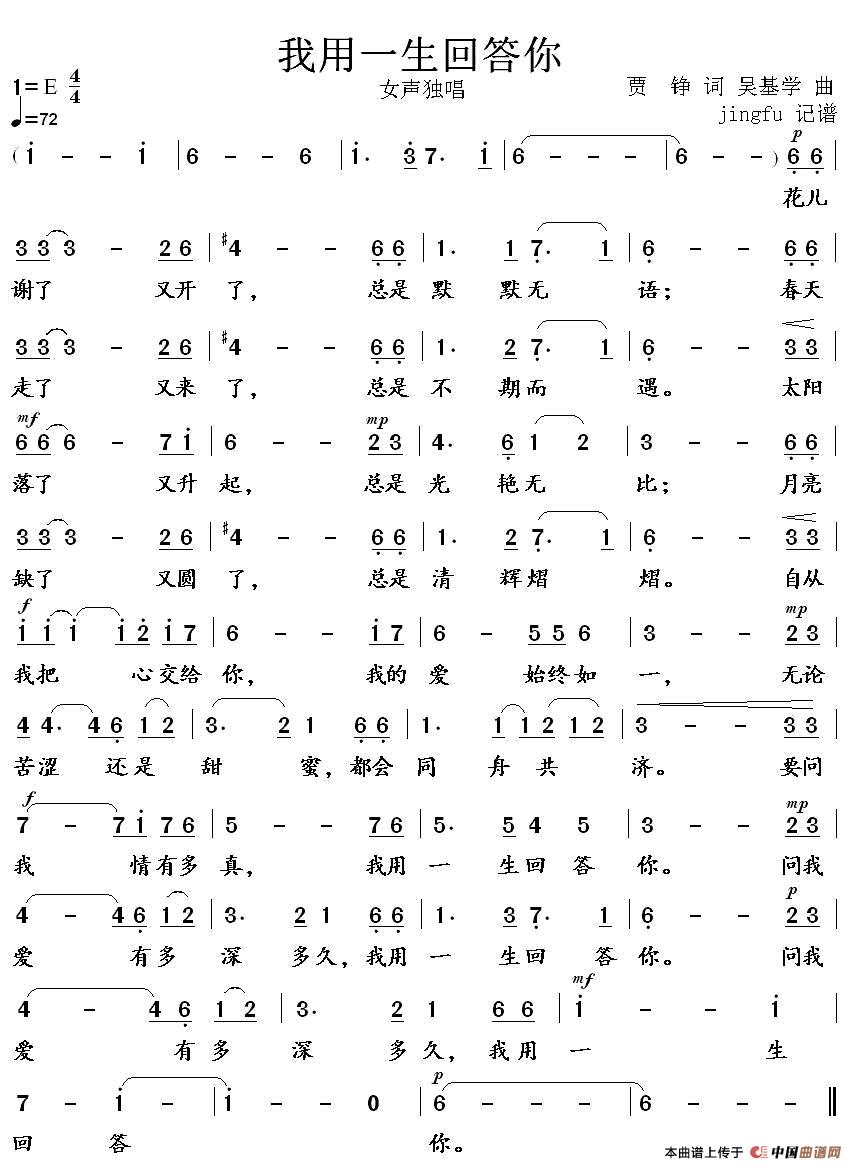 我用一生回答你
1=E 4/4
女声独唱
贾 铮 词 吴基学 曲
♩=72
jingfu 记谱
p
( i̇ - - i̇ | 6 - - 6 | i̇. 3̇ 7. i̇ | 6 - - - | 6 - - ) 6̣ 6̣ |
花儿
3 3 3 - 2 6 | #4 - - 6̣ 6̣ | 1. 1 7̣. 1 | 6̣ - - 6̣ 6̣ |
谢了 又开 了， 总是 默 默无 语； 春天
3 3 3 - 2 6 | #4 - - 6̣ 6̣ | 1. 2 7̣. 1 | 6̣ - - 3 3 |
走了 又来 了， 总是 不 期而 遇。 太阳
mf mp
6 6 6 - 7 i̇ | 6 - - 2 3 | 4. 6̣ 1 2 | 3 - - 6̣ 6̣ |
落了 又升 起， 总是 光 艳无 比； 月亮
3 3 3 - 2 6 | #4 - - 6̣ 6̣ | 1. 2 7̣. 1 | 6̣ - - 3 3 |
缺了 又圆 了， 总是 清 辉熠 熠。 自从
f mp
i̇ i̇ i̇ i̇ 2̇ i̇ 7 | 6 - - i̇ 7 | 6 - 5 5 6 | 3 - - 2 3 |
我把 心交给 你， 我的 爱 始终如 一， 无论
4 4. 4 6̣ 1 2 | 3. 2 1 6̣ 6̣ | 1. 1 1 2 1 2 | 3 - - 3 3 |
苦涩 还是 甜 蜜，都会 同 舟 共 济。 要问
f mp
7 - 7 i̇ 7 6 | 5 - - 7 6 | 5. 5 4 5 | 3 - - 2 3 |
我 情有多 真， 我用 一 生回 答 你。 问我
p
4 - 4 6̣ 1 2 | 3. 2 1 6̣ 6̣ | 1. 3 7̣. 1 | 6̣ - - 2 3 |
爱 有多 深 多久，我用 一 生回 答 你。 问我
mf
4 - 4 6̣ 1 2 | 3. 2 1 6 6 | i̇ - - i̇ |
爱 有多 深 多 久，我用 一 生
p
7 - i̇ - | i̇ - - 0 | 6 - - - | 6 - - - ‖
回 答 你。
本曲谱上传于 中国曲谱网